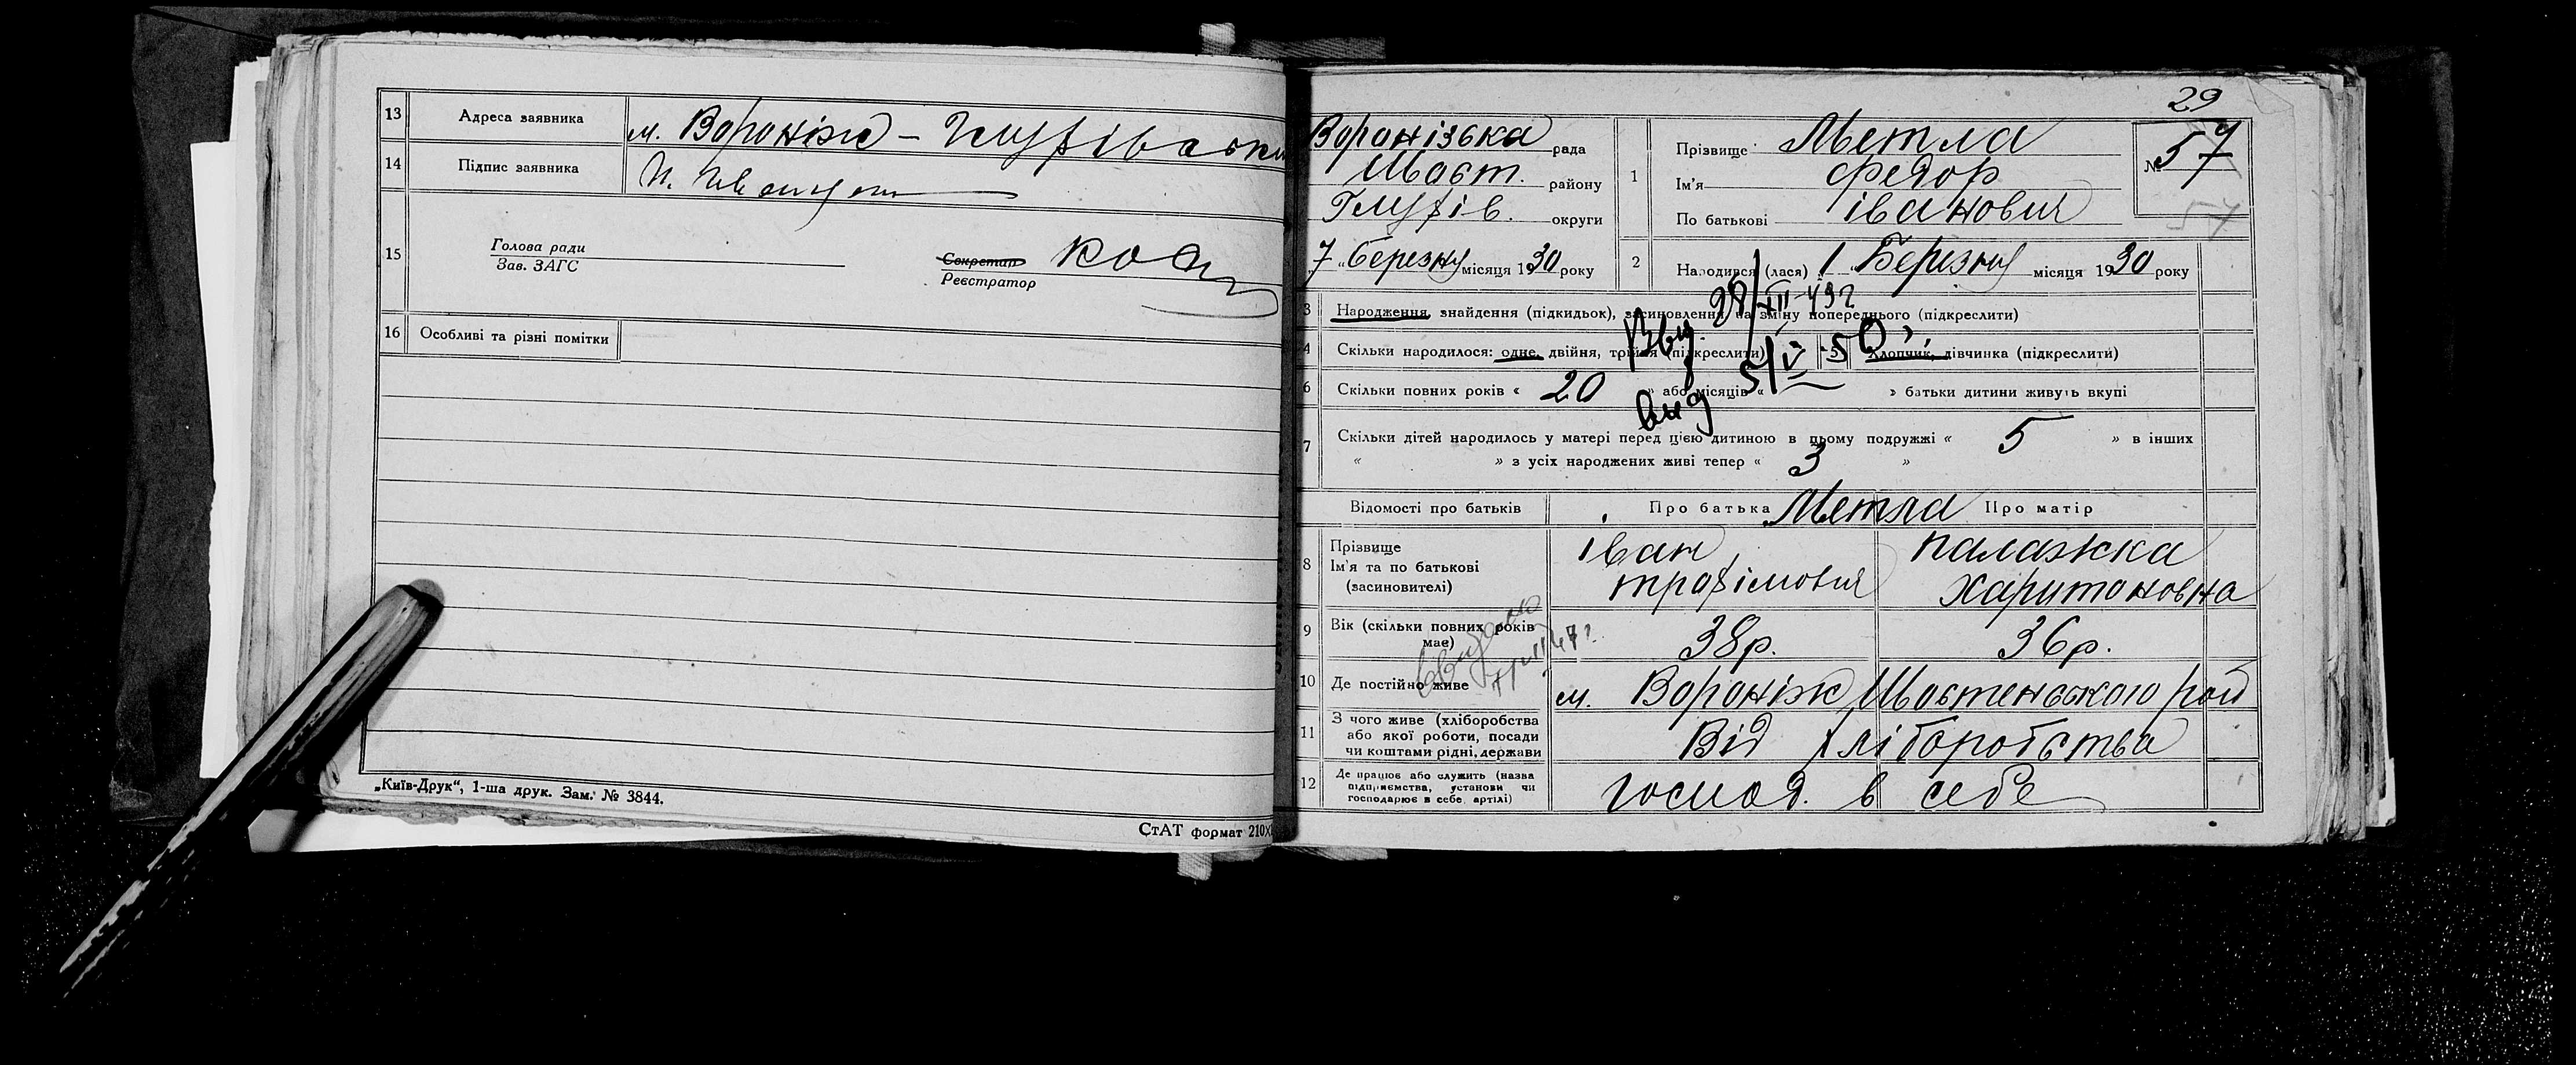 13 Адреса заявника м. Вороніж – Глухівськ
14 Підпис заявника
15 Голова ради
Зав. ЗАГС
Секретар
Реєстратор
16 Особливі та різні помітки
„Київ-Друк“, 1-ша друк. Зам. № 3844.
СтАТ формат 210×
29
Воронізька рада
Шост. району
Глухів. округи
7 „Березня місяця 1930 року
1 Прізвище Метла
Ім'я Федор
По батькові Іванович
№ 57
57
2 Народився (лася) 1 „Березня місяця 1930 року
3 Народження, знайдення (підкидьок), засиновлення на зміну попереднього (підкреслити)
4 Скільки народилося: одне, двійня, трійня (підкреслити) 5 Хлопчик, дівчинка (підкреслити)
6 Скільки повних років « 20 » або місяців « » батьки дитини живуть вкупі
7 Скільки дітей народилось у матері перед цією дитиною в цьому подружжі « 5 » в інших
« » з усіх народжених живі тепер « 3 »
Відомості про батьків Про батька Метла Про матір
8 Прізвище
Ім'я та по батькові
(засиновителі)
Іван
Трохімович
Палажка
Харитоновна
9 Вік (скільки повних років
має)
38р. 36р.
10 Де постійно живе м. Вороніж Шостенського рай
11 З чого живе (хліборобства
або якої роботи, посади
чи коштами рідні, держави
Від хліборобства
12 Де працює або служить (назва
підприємства, установи чи
господарює в себе, артілі)
господ. в себе